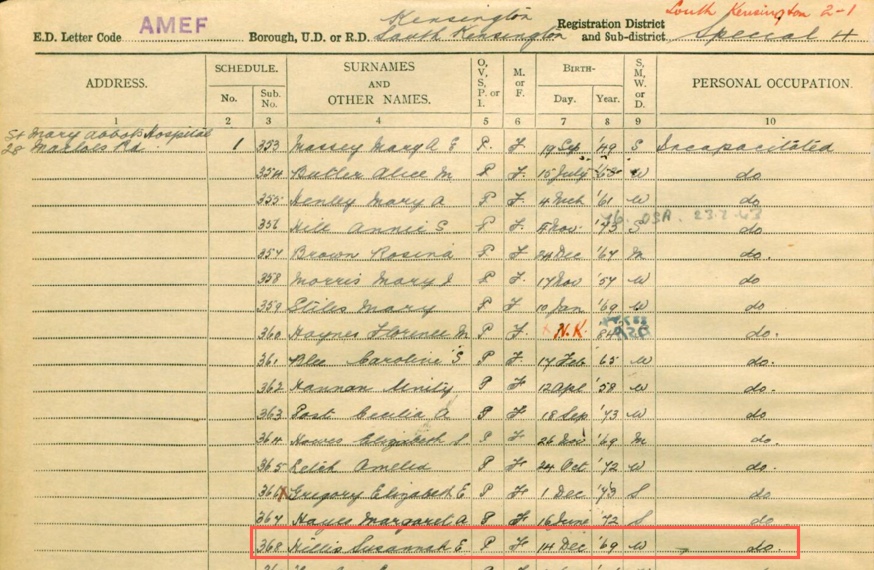 South Kensington 2-1
E.D. Letter Code AMEF Borough, U.D. or R.D. Kensington South Kensington Registration District and Sub-district Special H
ADDRESS. SCHEDULE. No. Sub. No. SURNAMES AND OTHER NAMES. O, V, S, P. or I. M. or F. BIRTH- Day. Year. S, M, W. or D. PERSONAL OCCUPATION.
1 2 3 4 5 6 7 8 9 10
St Mary Abbots Hospital
28 Marloes Rd. 1 353 Massey Mary A E P. F. 19 Sep '49 S Incapacitated
354 Butler Alice M P F. 15 July W do
355 Henley Mary A P F. 4 Mch '61 W do
23.2.43
356 Hill Annie S P F. 5 Nov '73 S do
357 Brown Rosina P F. 24 Dec '67 M do.
358 Morris Mary J P F. 17 Nov '57 W do
359 Stiles Mary P F. 10 Jan '69 W do
360 Haynes Florence M P F. N.K. do.
361 Caroline S P F. 17 Feb '65 W do.
362 Hannan Unity P F. 12 Apl '58 W do.
363 Post Cecilia A P F 18 Sep '73 W do
364 Howes Elizabeth S P F. 26 Nov '69 M do.
365 Amelia P F. 24 Oct '72 W do.
366 Gregory Elizabeth E P F. 1 Dec '73 S do
367 Margaret A P F. 16 June '72 S do
368 Susannah E P F 14 Dec '69 W do.